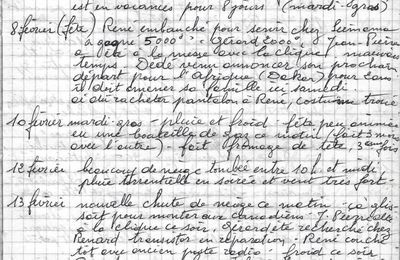 est en vacances pour 8 jours (mardi-gras)
8 février (fête) René embauché pour servir chez
a gagné 5000, Gérard 2000. J. Pierre
a fêté à la neige avec la clique, mauvais
temps. Dédé venu annoncer son prochain
départ pour l'Afrique (Daker) pour 2 ans
il doit emmener sa famille ici samedi.
ai dû racheter pantalon à René, costume troué
10 février mardi-gras - pluie et froid - fête peu animée
eu une bouteille de gaz ce matin (fait 3 mois
avec l'autre) - fait fromage de tête, 3 em fois
12 février beaucoup de neige tombée entre 10 h. et midi
pluie torrentielle en soirée et vent très fort -
13 février nouvelle chute de neige ce matin - ça glis-
sait pour monter aux canadiens. J. Pierre allé
à la clique ce soir. Gérard été rechercher chez
Renard transistor en réparation. René couché
tôt avec ancien poste radio - froid ce soir